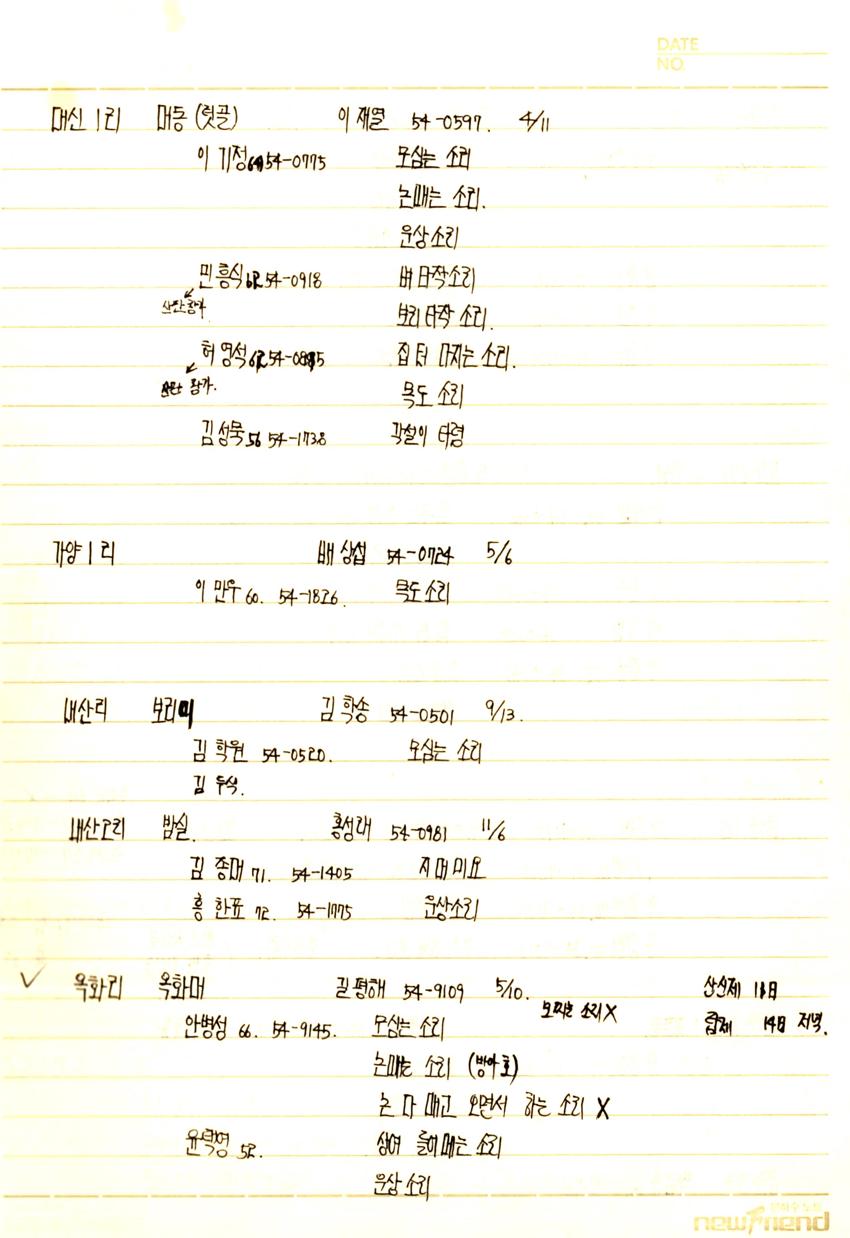 DATE
NO.
대신 1리 대동 (릿골) 이재열 54-0597. 4/11
이기정 54-0775 모심는 소리
논매는 소리.
운상소리
민흥식 62 54-0918 벼 타작소리
산판 황가 보리타작 소리.
허영석 62 54- 집터 다지는 소리.
산판 황가. 목도 소리
김성묵 56 54-1738 각설이 타령
가양 1리 배상섭 54-0724 5/6
이만우 60. 54-1826. 목도소리
내산리 보리미 김학송 54-0501 9/13.
김학원 54-0520. 모심는 소리
김두석.
내산2리 밤실. 홍성래 54-0981 11/6
김종대 71. 54-1405 지대미요
홍한표 72. 54-1775 운상소리
✓ 옥화리 옥화대 길평해 54-9109 5/10. 산신제 13日
안병성 66. 54-9145. 모심는 소리 모찌는 소리 X 14日 저녁.
논매는 소리 (방아호)
논 다 매고 오면서 하는 소리 X
윤택영 52. 상여 들어메는 소리
운상소리
newFriend